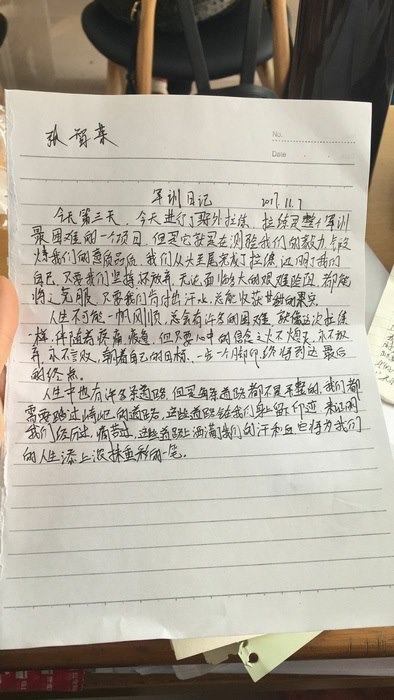 张智荣
No.
Date
军训日记 2017.11.7
今天第三天，今天进行了野外拉练，拉练是整个军训
最困难的一个项目，但是它就是在测验我们的毅力，
炼我们的意质品质，我们从头至尾完成了拉练，证明了我们
自己，只要我们坚持，不放弃，无论面临多大的艰难险阻，都能
将之克服，只要我们肯付出汗水，总能收获甘甜的果实。
人生不可能一帆风顺，总会有许多的困难，就像这次拉练
一样，伴随着疼痛，疲惫，但只要心中的信念之火不熄灭，永不放
弃，永不言败，朝着自己的目标，一步一个脚印，终将到达最后
的终点。
人生中也有许多条道路，但是每条道路都不是平整的，我们都
需要踏过崎岖的道路，这些道路给我们身上留下印迹，来证明
我们经历过，痛苦过，这些道路上洒满我们的汗和血，它将为我们
的人生添上浓抹重彩的一笔。